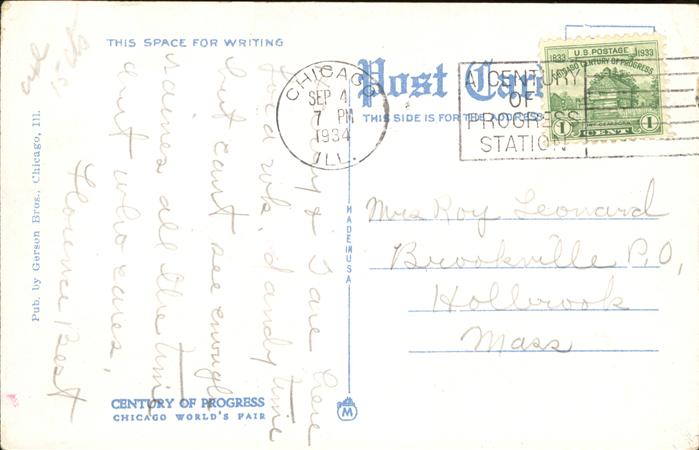 THIS SPACE FOR WRITING
Post Card
THIS SIDE IS FOR THE ADDRESS
CHICAGO
SEP 4
7 PM
1934
ILL.
A CENTURY
OF
PROGRESS
STATION
U.S. POSTAGE
1833 1933
CENTURY OF PROGRESS
1 CENT 1
& I are here
for a wk. dandy time
but cant see enough
rains all the time
but who cares.
Florence Best
Mrs Roy Leonard
Brookville P.O,
Holbrook
Mass
MADE IN USA
Pub. by Gerson Bros., Chicago, Ill.
CENTURY OF PROGRESS
CHICAGO WORLD'S FAIR
M